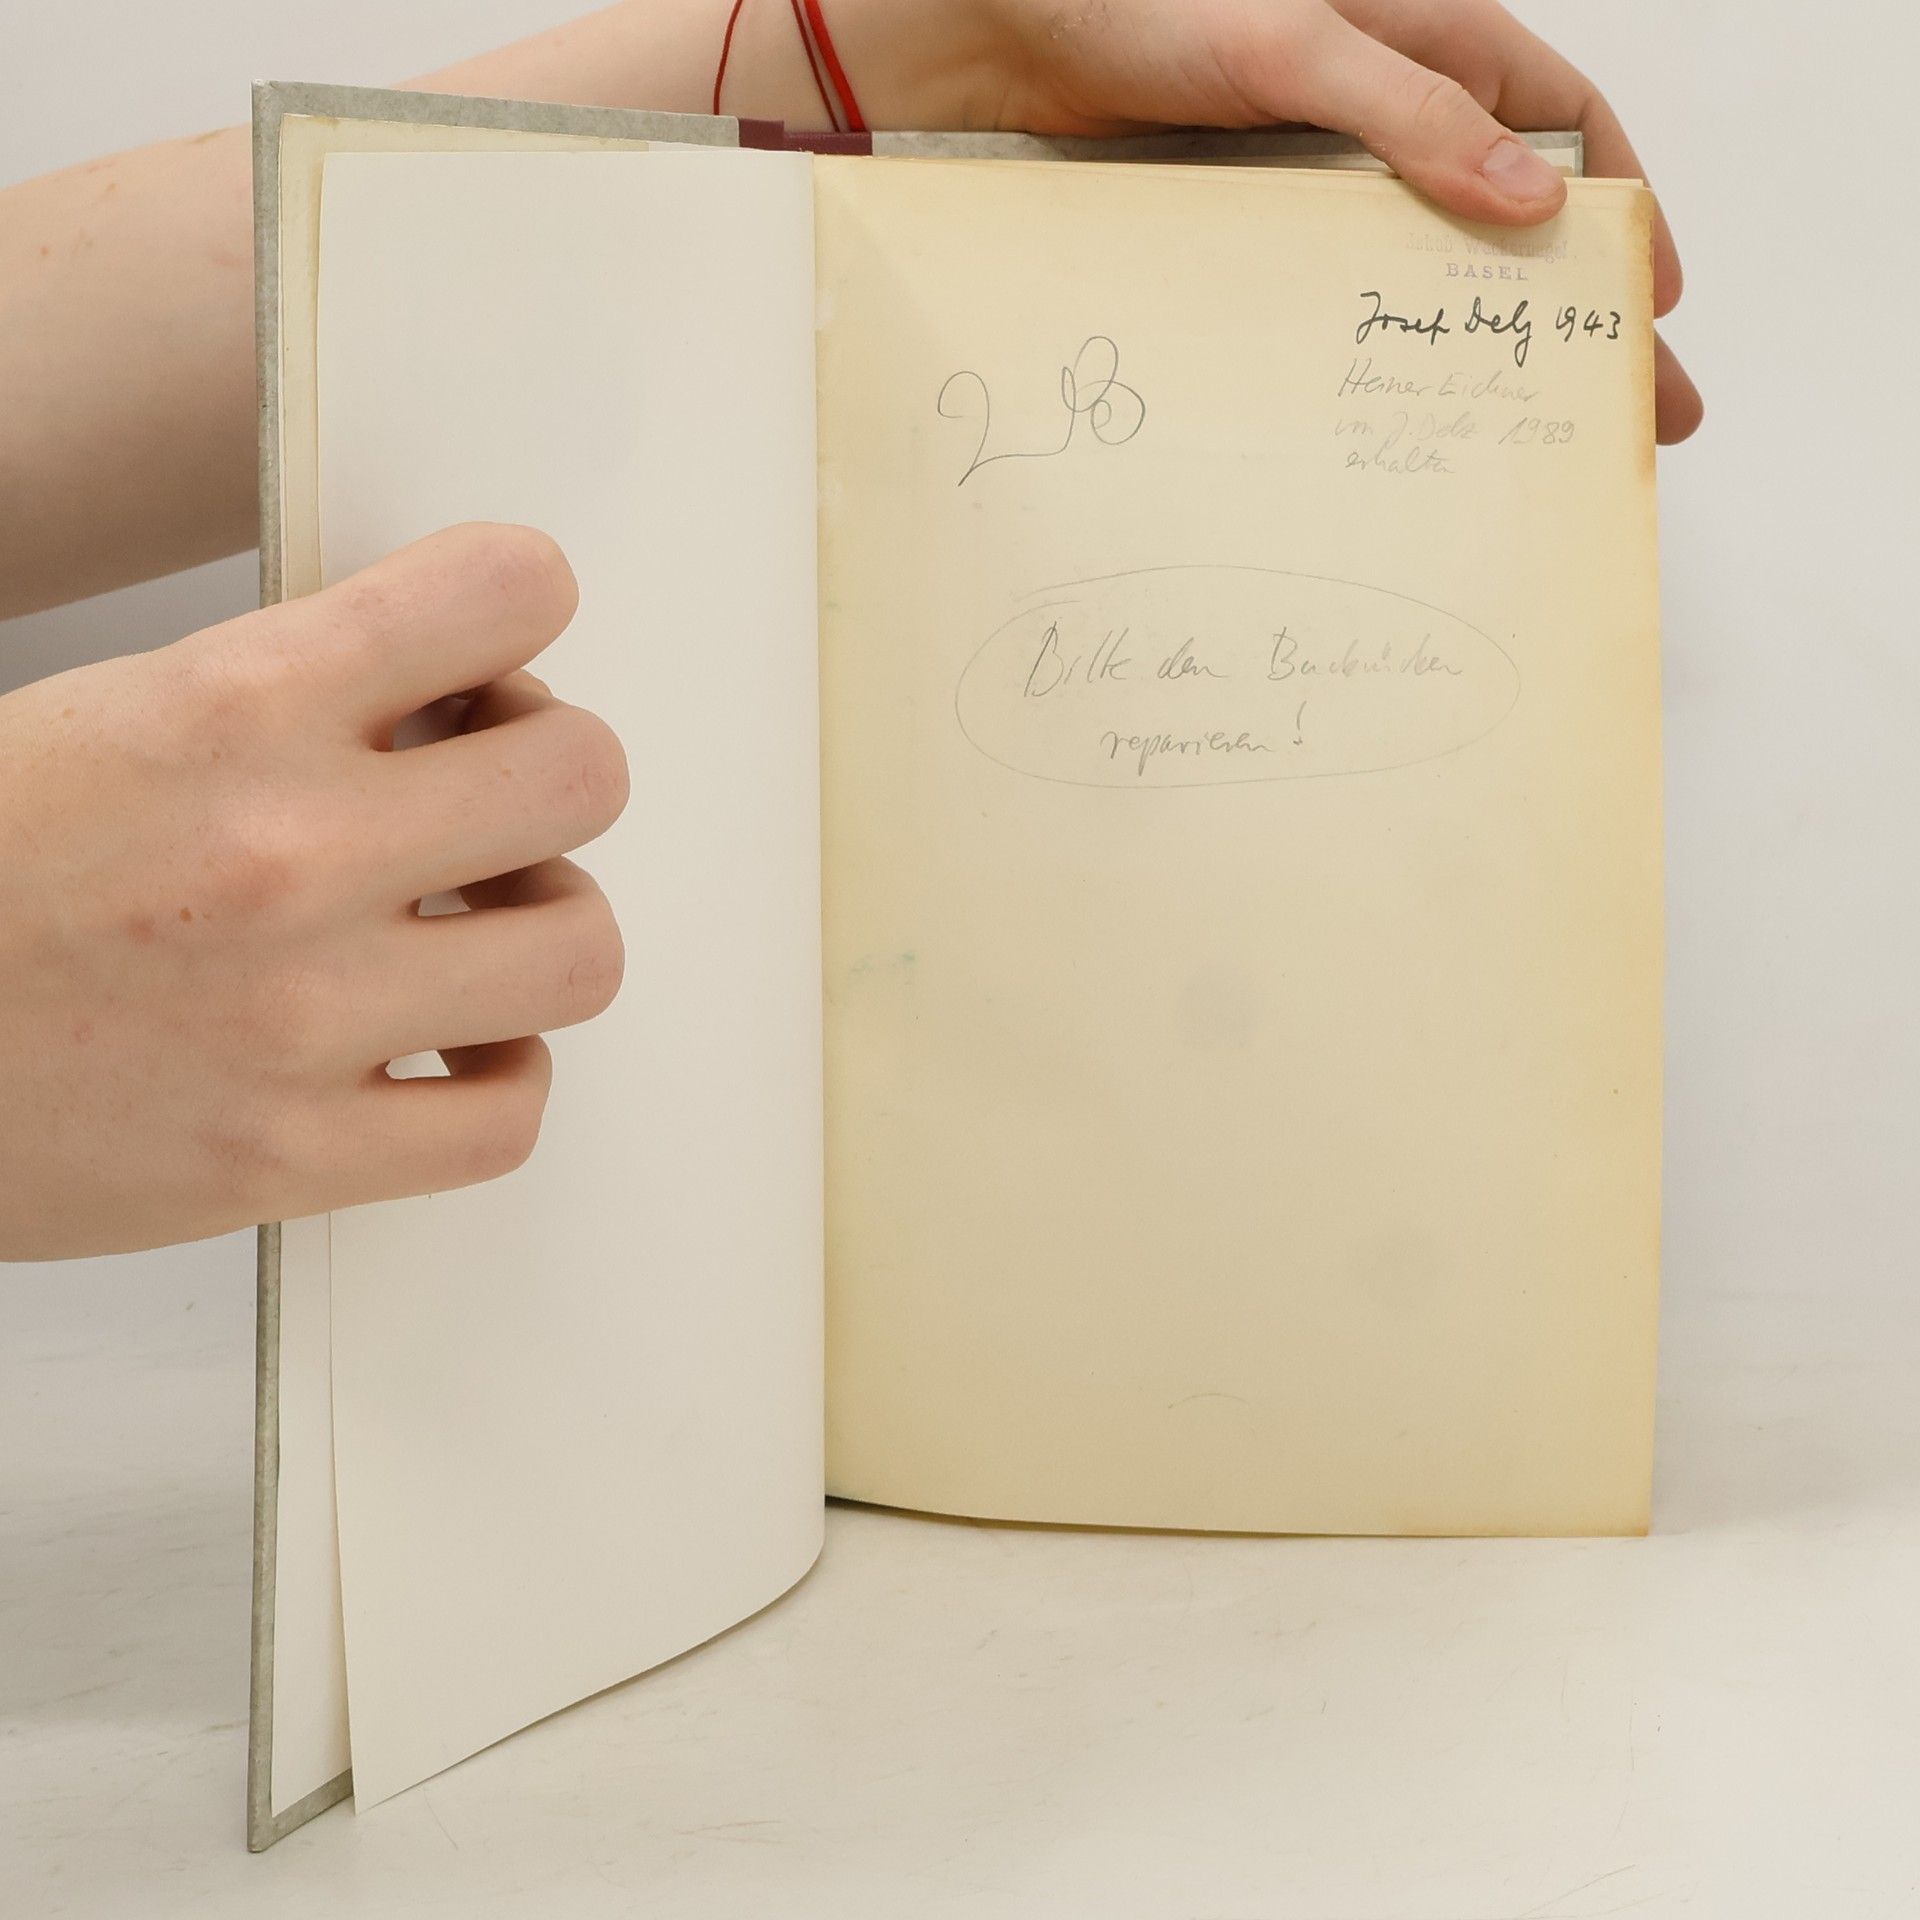 Jakob Wackernagel.
BASEL
Josef Delz 1943
Heiner Eichner
von J. Delz 1989
erhalten
Bitte den Buchrücken
reparieren!